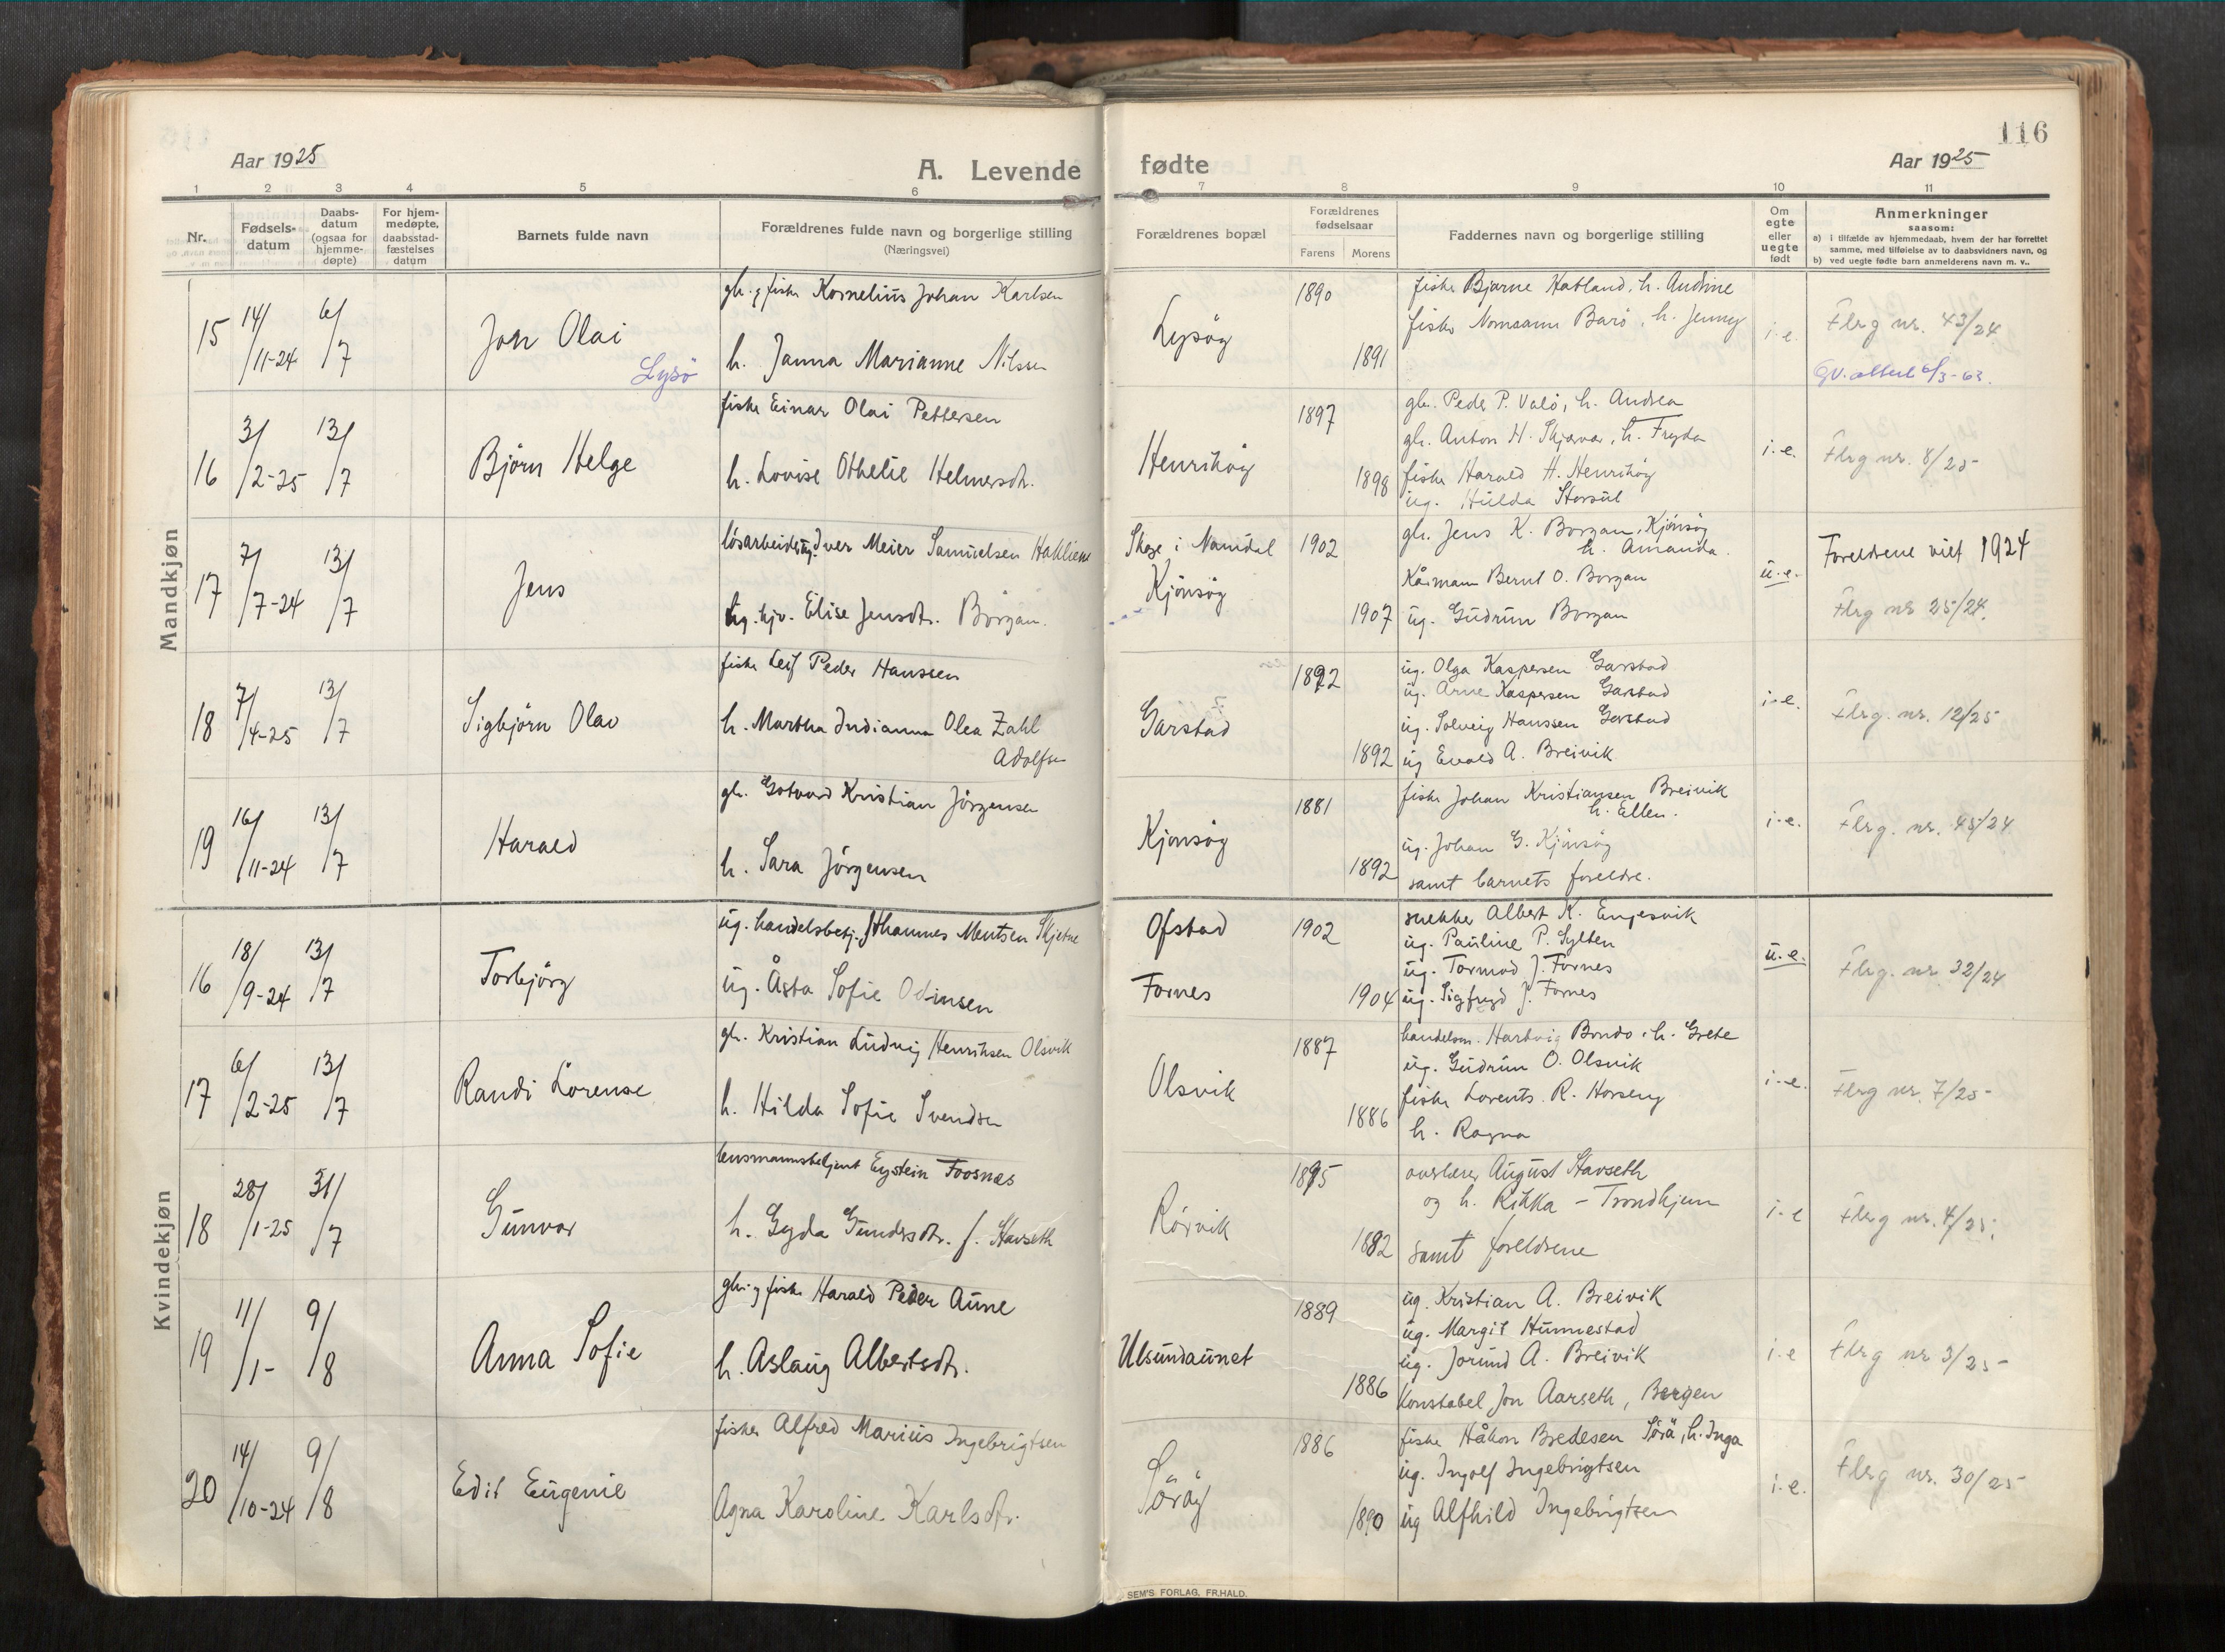 116
Aar 1925
A. Levende
fødte
Aar 1925
1 2 3 4 5 6 7 8 9 10 11
Nr.
Fødsels-
datum
Daabs-
datum
(ogsaa for
hjemme-
døpte)
For hjem-
medøpte,
daabsstad-
fæstelses
datum
Barnets fulde navn
Forældrenes fulde navn og borgerlige stilling
(Næringsvei)
Forældrenes bopæl
Forældrenes
fødselsaar
Farens Morens
Faddernes navn og borgerlige stilling
Om
egte
eller
uegte
født
Anmerkninger
saasom:
a) i tilfælde av hjemmedaab, hvem der har forrettet
samme, med tilføielse av to daabsvidners navn, og
b) ved uegte fødte barn anmelderens navn m. v..
Mandkjøn
15 14/11-24 6/7
Jon Olai
Lysö
gb. & fisker Kornelius Johan Karlsen
h. Janna Marianne Nilssen
Lysöy
1890
1891
fisker Bjarne Hatland, h. Andrine
fisker Barö, h. Jenny
i.e.
Flrg nr. 43/24
6/3-63.
16 3/2-25 13/7
Björn Helge
fisker Einar Olai Pettersen
h. Lovise Othelie Helmersdtr.
Henriköy
1897
1898
gb. Peder P. Valö, h. Andrea
gb. Anton H. Skjavar, h. Fryda
fisker Harald H. Henriköy
ug. Hulda Storsul
i.e.
Flrg nr. 8/25
17 7/7-24 13/7
Jens
lösarbeider ug. Iver Meier Samuelsen Hakliene
ug. hjv. Elise Jensdtr. Borgan.
Skage i Namdal
Kjönsöy
1902
1907
gb. Jens K. Borgan, Kjönsöy
h. Amanda.
Bernt O. Borgan
ug. Gudrun Borgan
u.e.
Foreldrene viet 1924
Flrg nr 25/24.
18 7/4-25 13/7
Sigbjörn Olav
fisker Leif Peder Hanssen
h. Martha Indianna Olea Zahl
Adolfsen
Garstad
1892
1892
ug. Olga Kaspersen Garstad
ug. Arne Kaspersen Garstad
ug. Solveig Hanssen Garstad
ug Evald A. Breivik
i.e.
Flrg. nr. 12/25
19 16/11-24 13/7
Harald
gb. Gotvard Kristian Jörgensen
h. Sara Jörgensen
Kjönsöy
1881
1892
fisker Johan Kristiansen Breivik
h. Ellen.
ug. Johan G. Kjönsöy
samt barnets foreldre.
i.e.
Flrg. nr. 45/24
Kvindekjøn
16 18/9-24 13/7
Torbjörg
ug. handelsbetj. Johannes Mentsen Skjetne
ug. Åsta Sofie Odinsen
Ofstad
Fornes
1902
1904
snekker Albert K. Engesvik
ug. Pauline P. Sylten
ug. Tormod J. Fornes
ug. Sigfryd J. Fornes
u.e.
Flrg. nr 32/24
17 6/2-25 13/7
Randi Lorense
gb. Kristian Ludvig Henriksen Olsvik
h. Hilda Sofie Svendsen
Olsvik
1887
1886
handelsm. Hartvig Bondo, h. Grete
ug. Gudrun O. Olsvik
fisker Lorents R. Horseng
h. Ragna
i.e.
Flrg nr. 7/25
18 28/1-25 31/7
Gunvor
lensmannsbetjent Eystein Foosnæs
h. Gyda Gundersdtr. f. Stavseth
Rörvik
1895
1892
overlærer August Stavseth
og h. Rikka - Trondhjem
samt foreldrene
i.e
Flrg nr. 4/25.
19 11/1- 9/8
Anna Sofie
gb. & fisker Harald Peder Aune
h. Aslaug Albertsdtr.
Ulsundaunet
1889
1886
ug. Kristian A. Breivik
ug. Margit Hunnestad
ug. Jorund A. Breivik
Konstabel Jon Aarseth, Bergen
i.e
Flrg nr 3/25
20 14/10-24 9/8
Edit Eugenie
fisker Alfred Marius Ingebrigtsen
Agna Karoline Karlsdtr.
Söröy
1886
1890
fisker Håkon Bredesen Sörå, h. Inga
ug. Ingolf Ingebrigtsen
ug Alfhild Ingebrigtsen
i.e.
Flrg nr. 30/25
SEM'S FORLAG, FR.HALD.